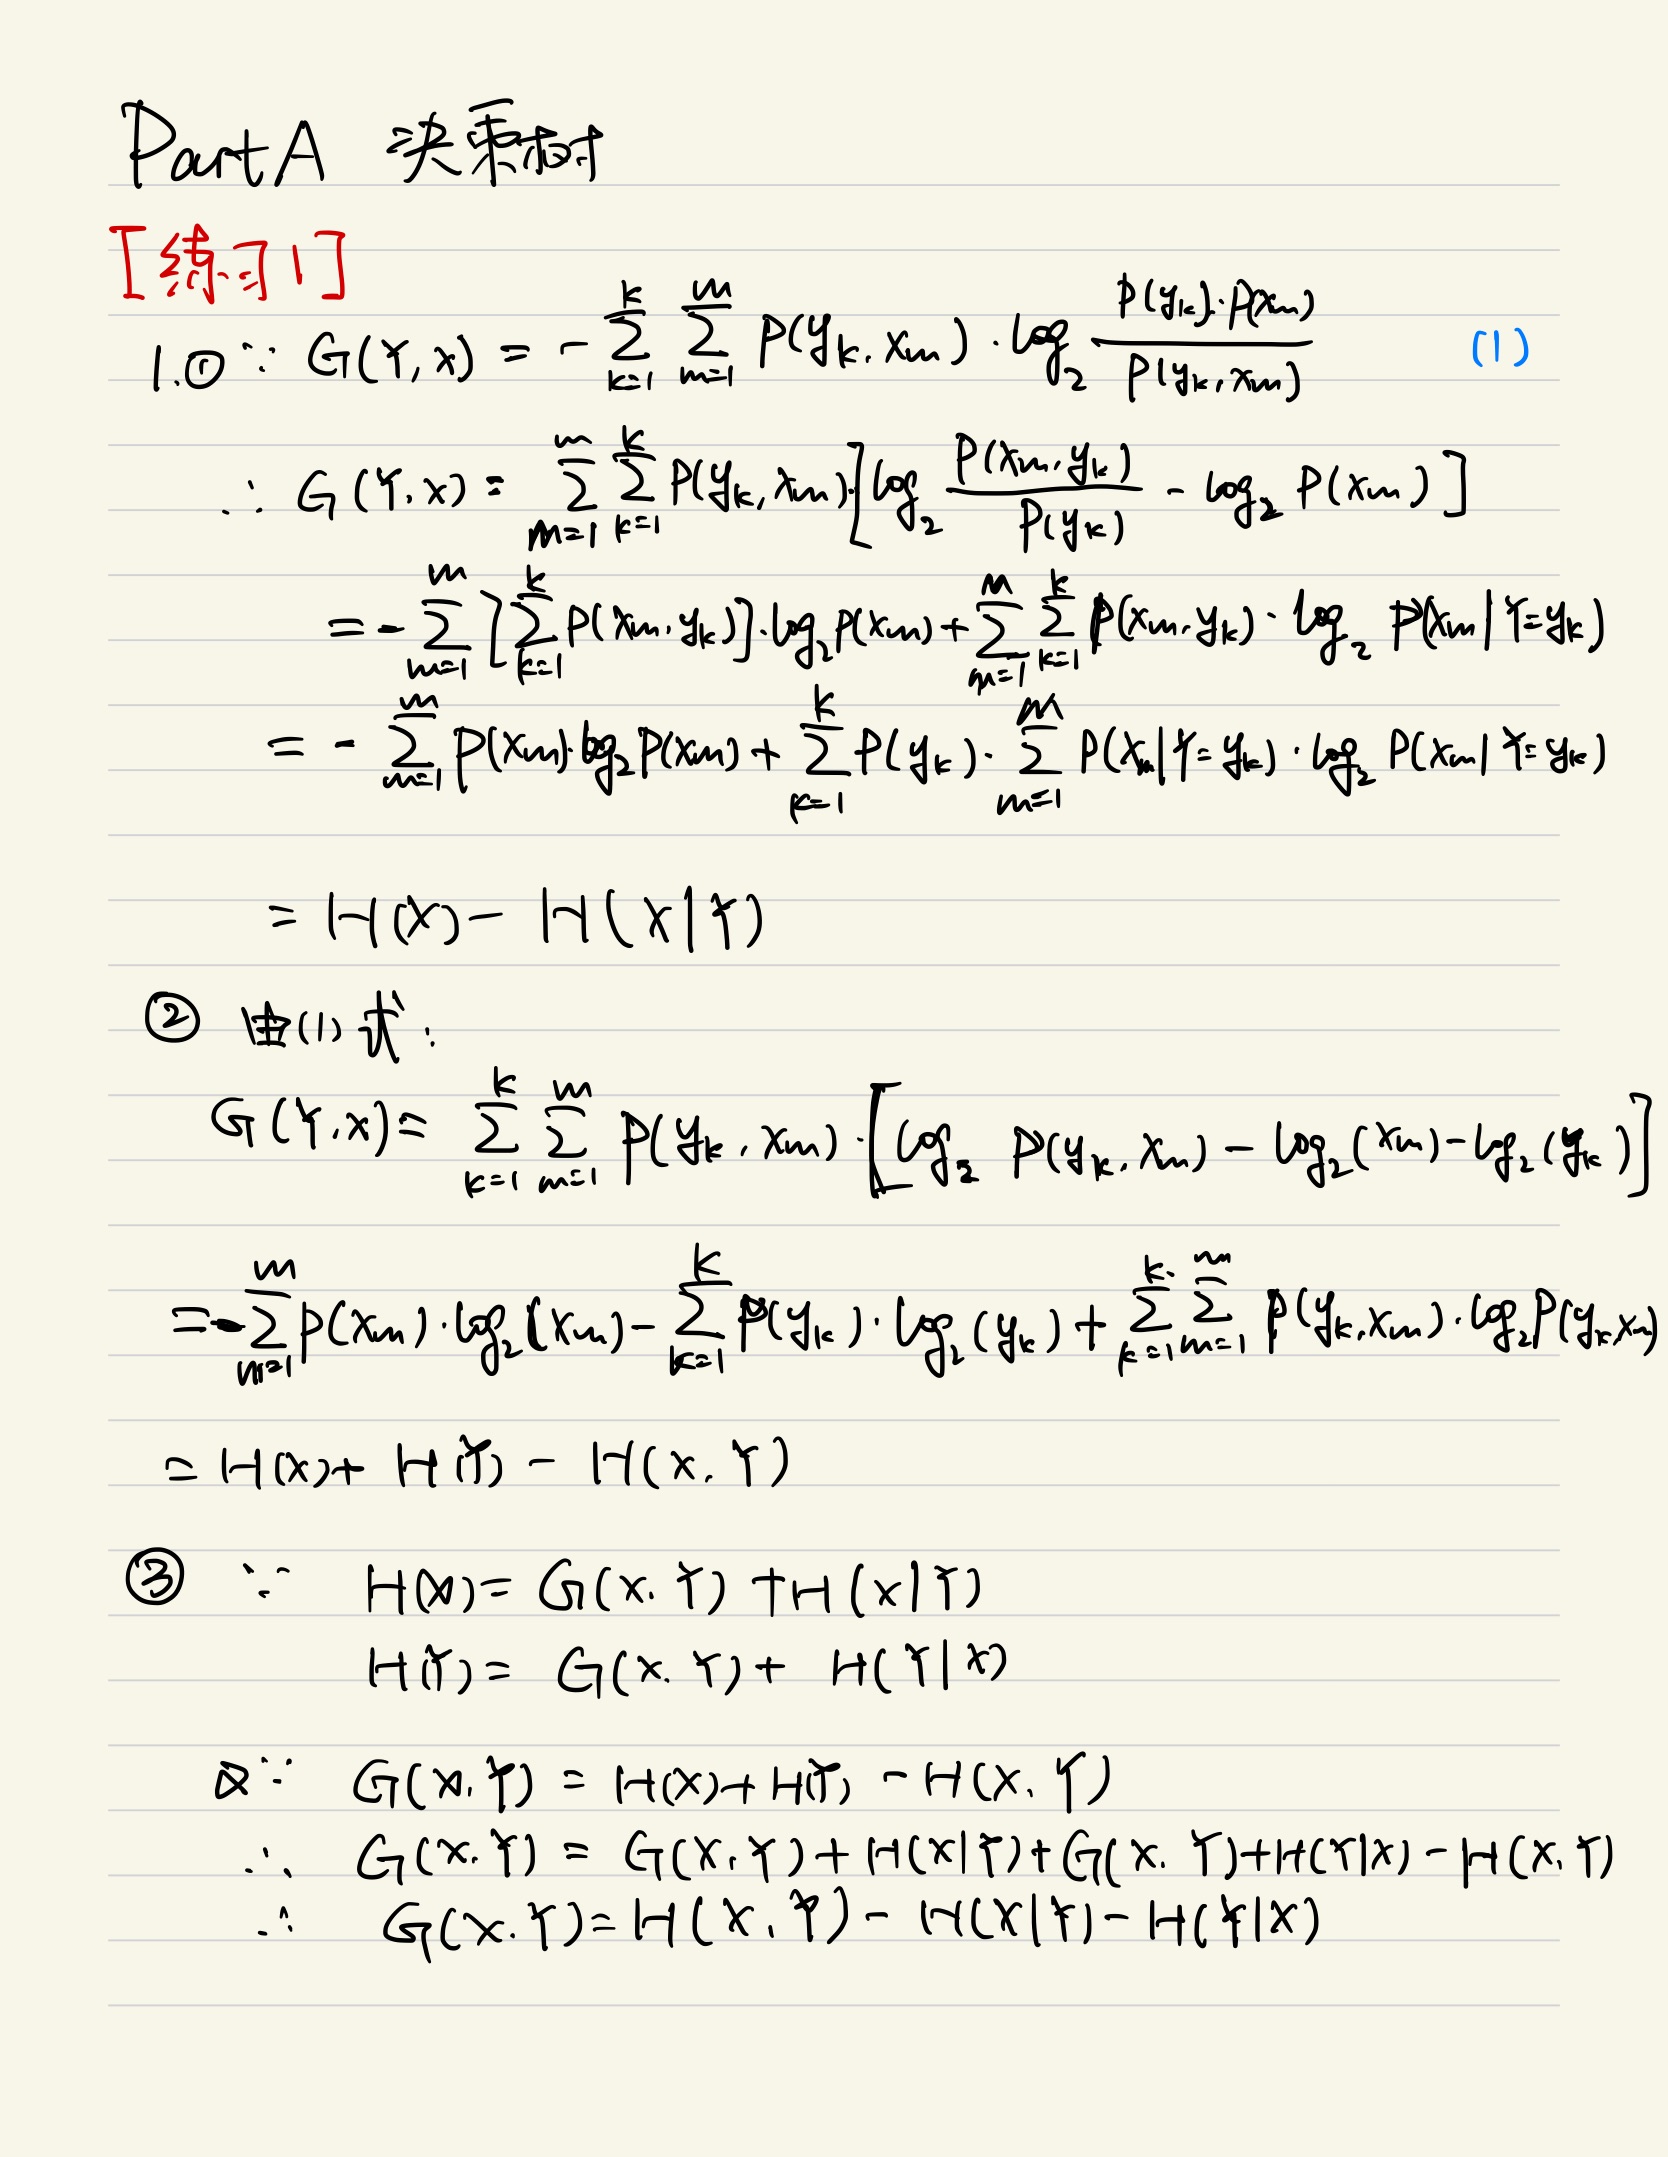 Part A 决策树
[练习1]
1.① ∵ G(Y,X) = -∑_{k=1}^{K} ∑_{m=1}^{M} P(y_k, x_m) · log_2 \frac{P(y_k)·P(x_m)}{P(y_k, x_m)} (1)
∴ G(Y,X) = ∑_{m=1}^{M} ∑_{k=1}^{K} P(y_k, x_m)·[log_2 \frac{P(x_m, y_k)}{P(y_k)} - log_2 P(x_m)]
= -∑_{m=1}^{M} [∑_{k=1}^{K} P(x_m, y_k)]·log_2 P(x_m) + ∑_{m=1}^{M} ∑_{k=1}^{K} P(x_m, y_k) · log_2 P(x_m|Y=y_k)
= -∑_{m=1}^{M} P(x_m)·log_2 P(x_m) + ∑_{k=1}^{K} P(y_k)·∑_{m=1}^{M} P(x_m|Y=y_k) · log_2 P(x_m|Y=y_k)
= H(X) - H(X|Y)
② 由(1)式:
G(Y,X) = ∑_{k=1}^{K} ∑_{m=1}^{M} P(y_k, x_m)·[log_2 P(y_k, x_m) - log_2(x_m) - log_2(y_k)]
= -∑_{m=1}^{M} P(x_m)·log_2(x_m) - ∑_{k=1}^{K} P(y_k)·log_2(y_k) + ∑_{k=1}^{K} ∑_{m=1}^{M} P(y_k, x_m)·log_2 P(y_k, x_m)
= H(X) + H(Y) - H(X,Y)
③ ∵ H(X) = G(X,Y) + H(X|Y)
H(Y) = G(X,Y) + H(Y|X)
又∵ G(X,Y) = H(X) + H(Y) - H(X,Y)
∴ G(X,Y) = G(X,Y) + H(X|Y) + G(X,Y) + H(Y|X) - H(X,Y)
∴ G(X,Y) = H(X,Y) - H(X|Y) - H(Y|X)